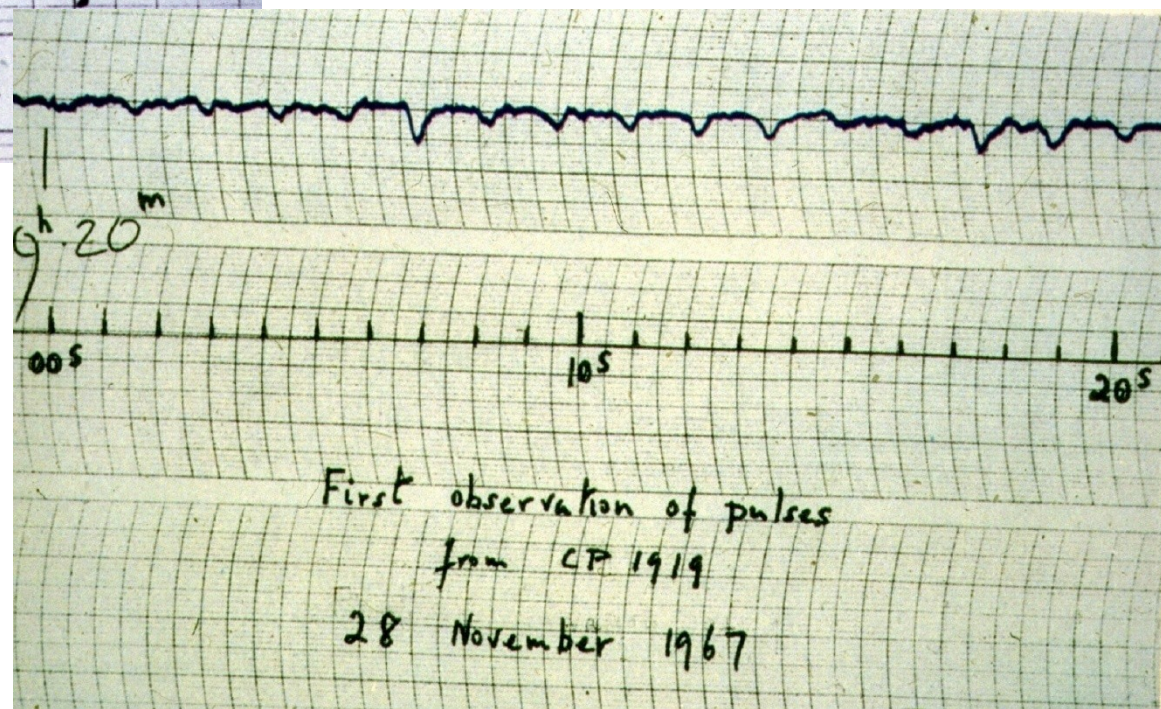 9ʰ 20ᵐ
00ˢ 10ˢ 20ˢ
First observation of pulses
from CP 1919
28 November 1967